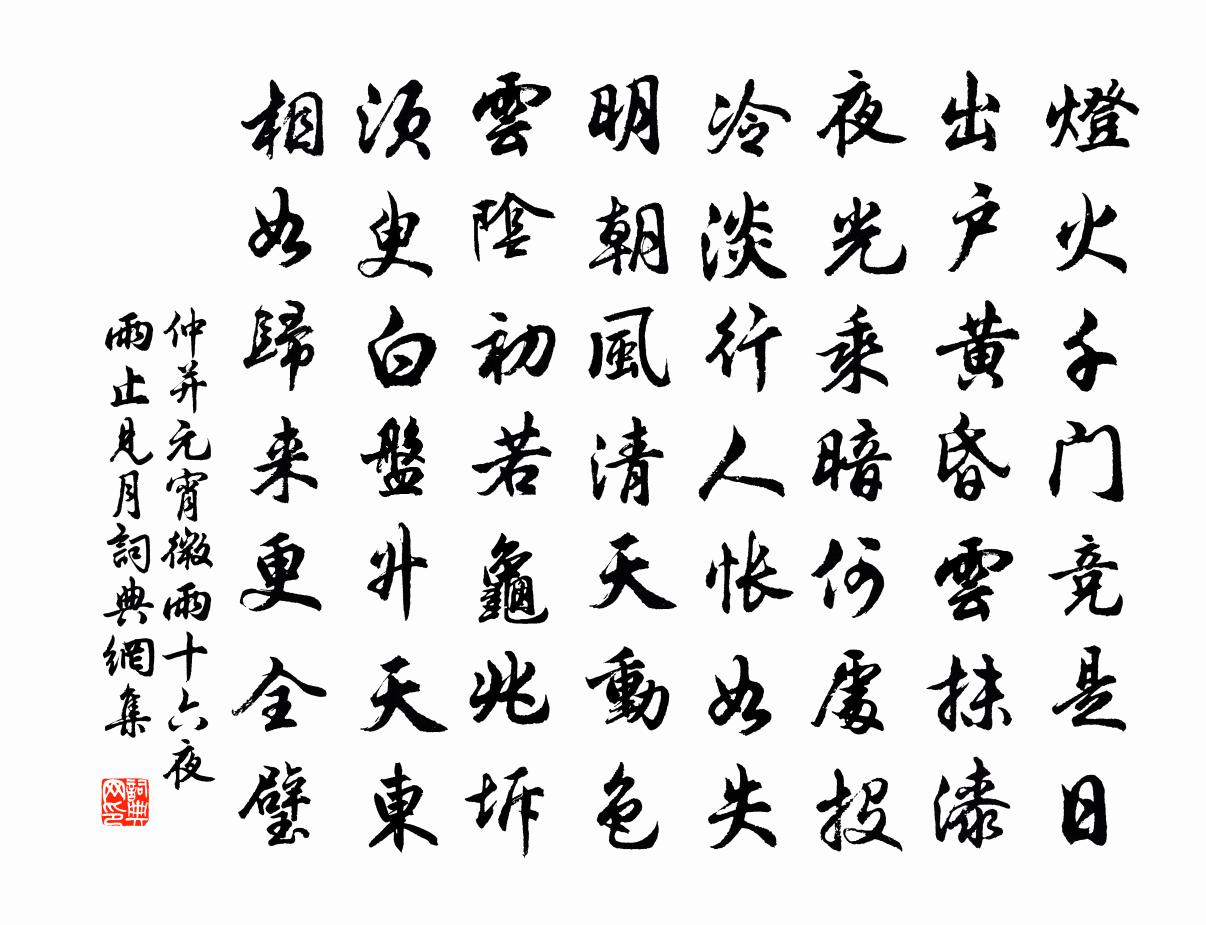 燈火千门竞是日
出户黄昏雲抹漆
夜光乘暗何處投
冷淡行人怅如失
明朝風清天動色
雲陰初若龜兆坼
須臾白盤升天東
相如歸来更全璧
仲并元宵微雨十六夜
雨止見月詞典網集
詞典
网印